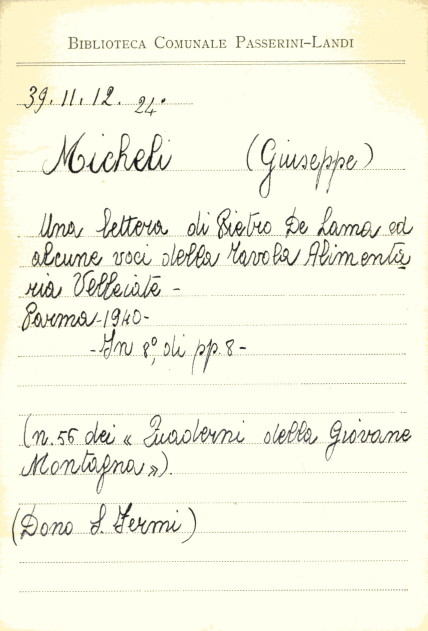 BIBLIOTECA COMUNALE PASSERINI-LANDI
39.11.12. 24.
Micheli (Giuseppe)
Una lettera di Pietro De Lama ed
alcune voci della Tavola Alimenta
ria Velleiate -
Parma - 1940 -
- In 8°, di pp. 8 -
(n. 56 dei « Quaderni della Giovane
Montagna »).
(Dono S. Fermi)